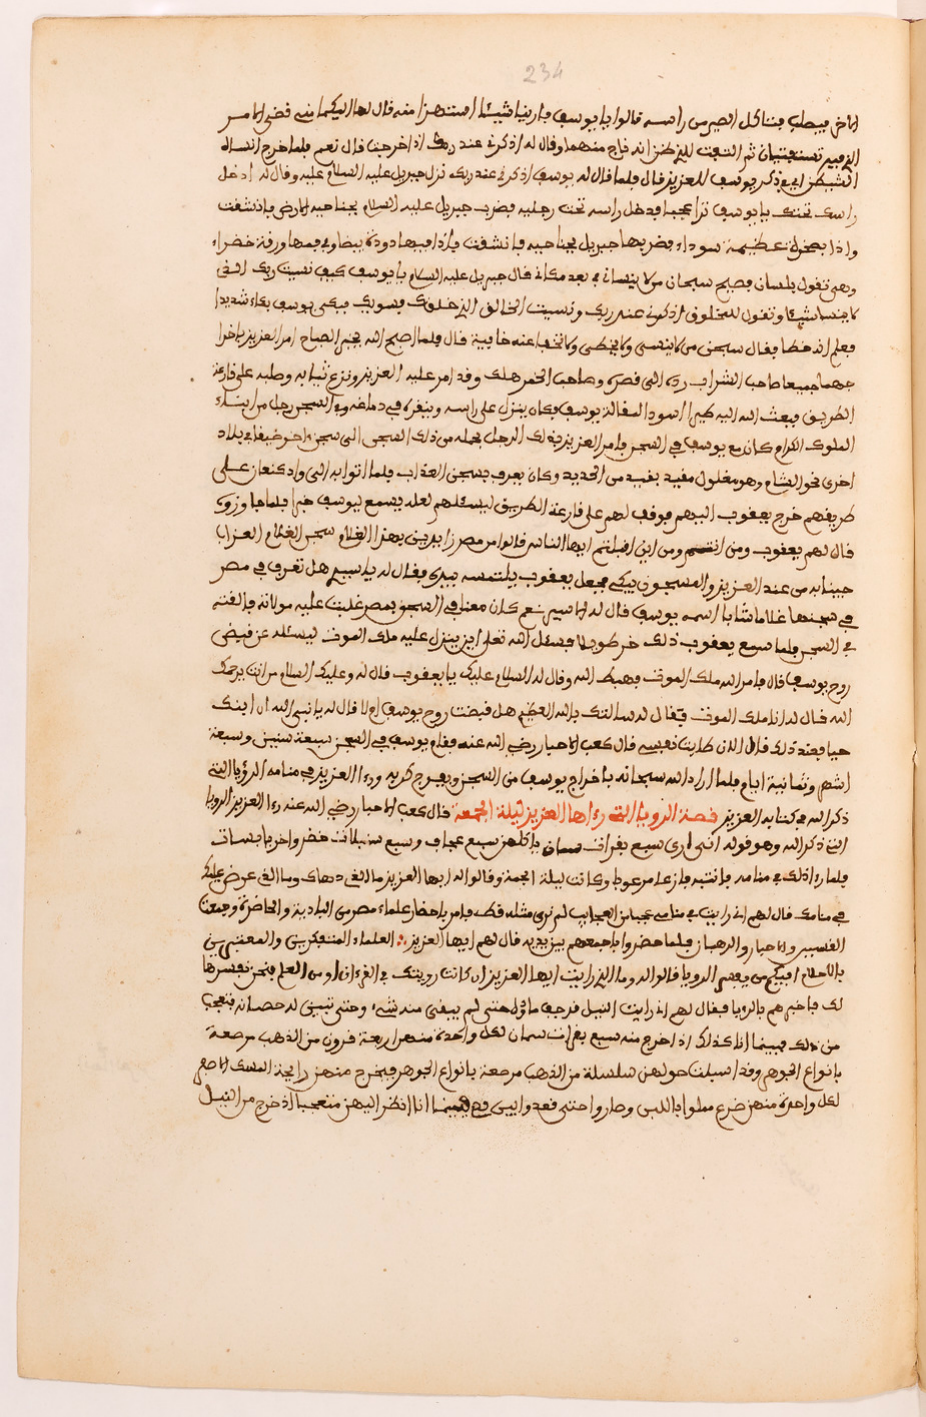 234
الاخر فيصلب فتاكل الطير من راسه قالوا يا يوسف ما رينا شيئا استهزا منه قال لهما اليكما مني قضي الامر
الذي فيه تستفتيان ثم التفت للذي ظن انه ناج منهما وقال له اذكرني عند ربك اذا خرجت قال نعم فلما خرج انساه
الشيطن ان يذكر يوسف للعزيز قال فلما قال له يوسف اذكرني عند ربك نزل جبريل عليه السلام عليه وقال له ادخل
راسك تحتك يا يوسف ترا عجبا فدخل راسه تحت رجليه فضرب جبريل عليه السلام بجناحيه الارض فانشقت
واذا بصخرة عظيمة سوداء فضربها جبريل بجناحيه فانشقت فاذا فيها دودة بيضا وفي فمها ورقة خضراء
وهي تقول بلسان فصيح سبحان من لا ينساني في بعد مكاني قال جبريل عليه السلام يا يوسف كيف نسيت ربك الذي
لا ينسا شيئا وتقول للمخلوق اذكرني عند ربك ونسيت الخالق الذي خلقك فسويك فبكى يوسف بكاء شديدا
فعلم انه خطا فقال سبحن من لا ينسى ولا يخطي ولا تخفا عنه خافية قال فلما اصبح الله بخير الصباح امر العزيز باخرا
جهما جميعا صاحب الشراب رده الى قصره وصاحب الخمر هلك وقد امر عليه العزيز ونزع ثيابه وصلبه على قارعة
الطريق فبعث الله اليه طيرا اسود لمقالة يوسف فكان ينزل على راسه وينقره في دماغه وفي السجن رجل من ابناء
الملوك الكرام كان مع يوسف في السجن فامر العزيز بذلك الرجل يحمله من ذلك السجن الى سجن اخر ضيقا في بلاد
اخرى نحو الشام وهو مغلول مقيد بقيد من الحديد وكان يعرف بسجن العذاب فلما اتوا به الى واد كنعان على
طريقهم خرج يعقوب اليهم فوقف لهم على قارعة الطريق ليسئلهم لعله يسمع ليوسف خبرا فلما جاوزوه
قال لهم يعقوب ومن انتم ومن اين اقبلتم ايها الناس قالوا من مصر زايرين بهذا الغلام سجن الغلام العذاب
جينا به من عند العزيز والمسجون يبكي فجعل يعقوب يلتمسه بيده فقال له يا سيدي هل تعرف في مصر
في سجنها غلاما شابا اسمه يوسف قال له الاسير نعم كان معنا في السجن بمصر غلبت عليه مولاته فالقته
في السجن فلما سمع يعقوب ذلك خر طويلا فسئل الله تعلى ان ينزل عليه ملك الموت ليسئله عن قبض
روح يوسف قال فامر الله ملك الموت فهبط الله وقال له السلام عليك يا يعقوب قال له وعليك السلام من انت يرحمك
الله قال له انا ملك الموت فقال له سالتك بالله العظيم هل قبضت روح يوسف ام لا قال له يا نبي الله ان ابنك
حيا فعند ذلك قال الان طابت نفسي قال كعب الاحبار رضي الله عنه فقام يوسف في السجن سبعة سنين وسبعة
اشهر وثمانية ايام فلما اراد الله سبحانه باخراج يوسف من السجن ويفرج كربه ورءا العزيز في منامه الرؤيا التي
ذكر الله في كتابه العزيز قصة الرويا التي رءاها العزيز ليلة الجمعة قال كعب الاحبار رضي الله عنه رءا العزيز الرويا
التي ذكر الله وهو قوله انى ارى سبع بقرات سمان ياكلهن سبع عجاف وسبع سنبلات خضر واخر يابسات
فلما رءا ذلك في منامه فانتبه فازعا مرعوبا وكانت ليلة الجمعة وقالوا له ايها العزيز ما الذي دهاك وما الذي عرض عليك
في منامك قال لهم اني رايت في منامي عجبا من العجايب لم نرى مثله قط فامر باحضار علماء مصر من البادية والحاضرة وجمعت
القسيسر والاحبار والرهبان فلما حضروا باجمعهم بين يديه قال لهم ايها العزيز العلماء المتفكرين والمعتبرين
بالاحلام افيكم من يعبر الرويا قالوا له وما الذي رايت ايها العزيز ان كانت رويتك في القرءان او من العلم فنحن نفسرها
لك فاخبرهم بالرويا فقال لهم اني رايت النيل قد جف ماؤه حتى لم يبقى منه شيء وحتى تبينى له حصاته فتعجبت
من ذلك فبينما انا كذلك اذا خرج منه سبع بقرات سمان لكل واحدة منهم اربعة قرون من الذهب مرصعة
بانواع الجوهر وقد اسبلت حولهن سلسلة من الذهب مرصعة بانواع الجوهر فيخرج منهن رايحة المسك الاصفر
لكل واحدة منهن ضرع مملوا باللبن وصاروا حتى قعدوا بين فبينما انا انظر اليهن متعجبا اذ خرج من النيل